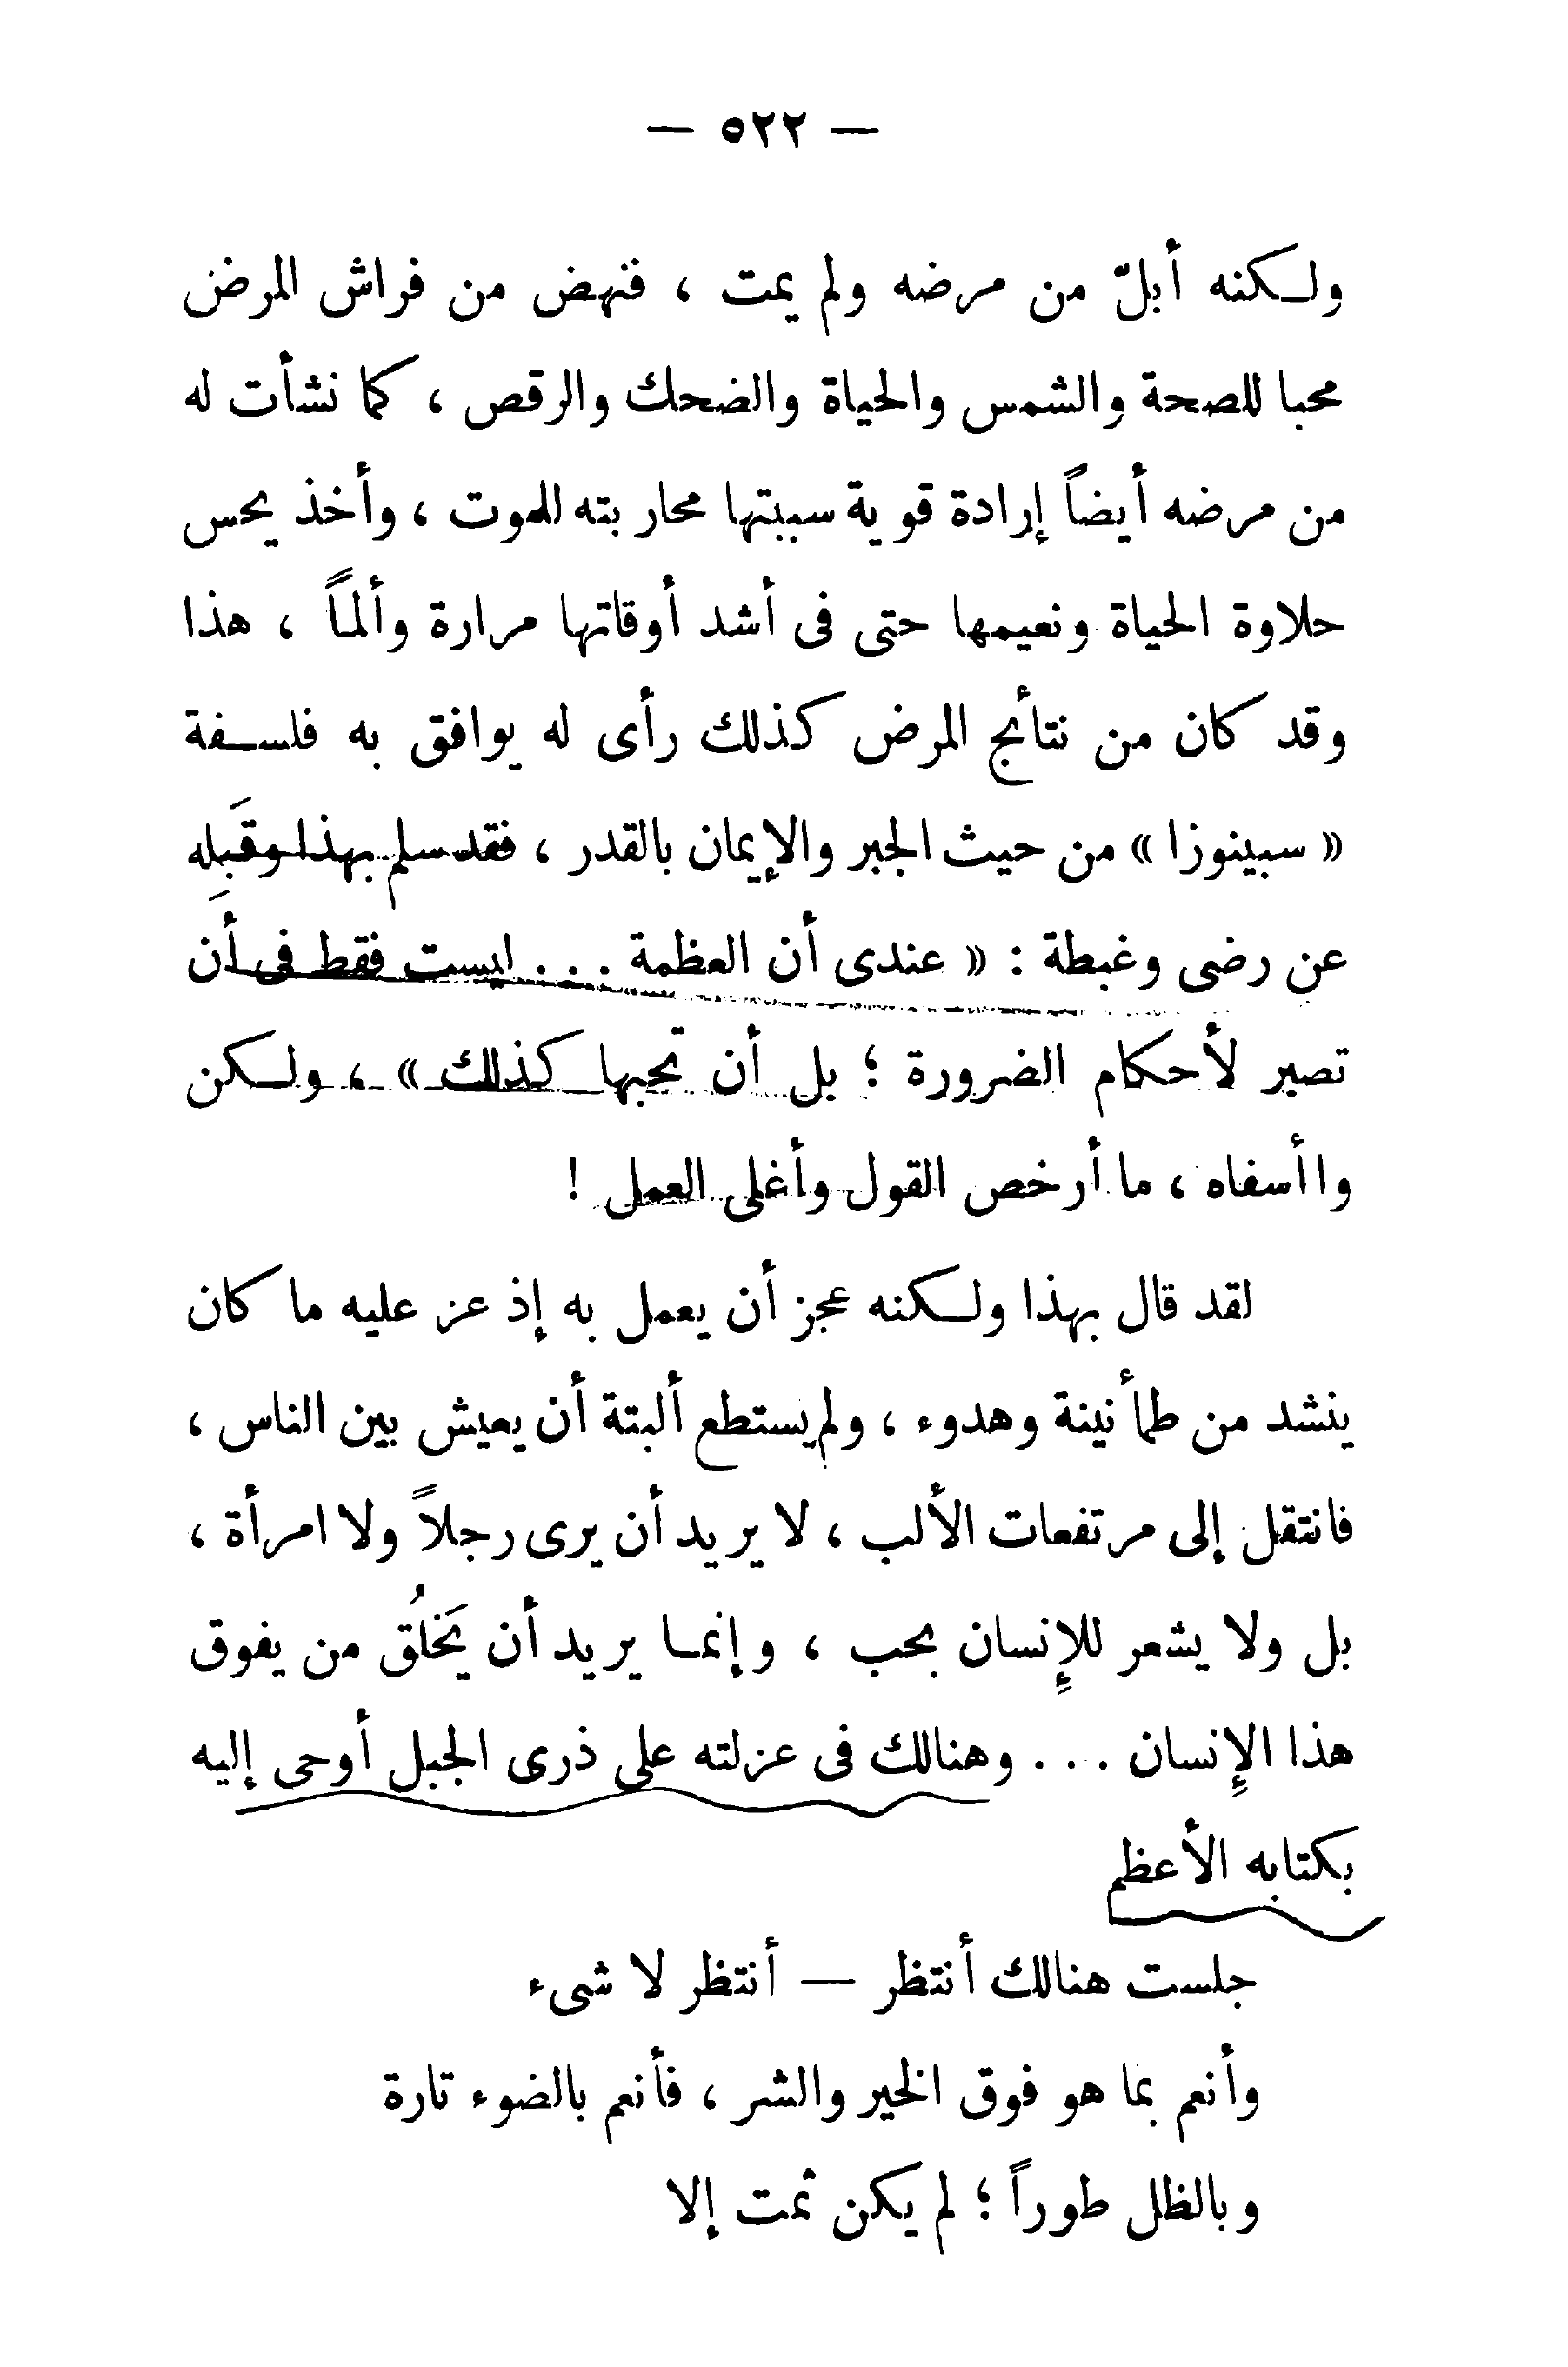 — ٥٢٢ —
ولكنه أبلّ من مرضه ولم يمت ، فنهض من فراش المرض
محبا للصحة والشمس والحياة والضحك والرقص ، كما نشأت له
من مرضه أيضاً إرادة قوية سببتها محاربته للموت ، وأخذ يحس
حلاوة الحياة ونعيمها حتى فى أشد أوقاتها مرارة وألماً ، هذا
وقد كان من نتائج المرض كذلك رأى له يوافق به فلسفة
« سبينوزا » من حيث الجبر والإيمان بالقدر ، فقد سلم بهذا وقَبِله
عن رضى وغبطة : « عندى أن العظمة . . . ليست فقط فى أن
تصبر لأحكام الضرورة ؛ بل أن تحبها كذلك » ، ولكن
واأسفاه ، ما أرخص القول وأغلى العمل !
لقد قال بهذا ولكنه عجز أن يعمل به إذ عز عليه ما كان
ينشد من طمأنينة وهدوء ، ولم يستطع ألبتة أن يعيش بين الناس ،
فانتقل إلى مرتفعات الألب ، لا يريد أن يرى رجلاً ولا امرأة ،
بل ولا يشعر للإنسان بحب ، وإنما يريد أن يَخلُق من يفوق
هذا الإنسان . . . وهنالك فى عزلته على ذرى الجبل أوحى إليه
بكتابه الأعظم
جلست هنالك أنتظر — أنتظر لا شىء
وأنعم بما هو فوق الخير والشر ، فأنعم بالضوء تارة
وبالظل طوراً ؛ لم يكن ثمت إلا